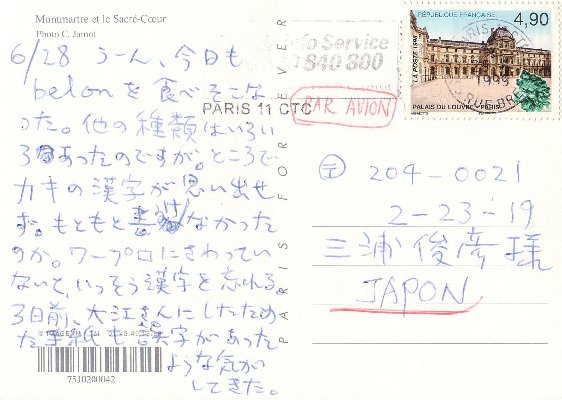 Montmartre et le Sacré-Cœur
Photo C. Jarnot
6/28 うーん、今日も
belonを食べそこな
った。他の種類はいろい
ろあったのですが。ところで
カキの漢字が思い出せ
ず。もともと書けなかった
のか。ワープロにさわってい
ないと、いっそう漢字を忘れる。
3日前、大江さんにしたため
た手紙も誤字があった
ような気が
してきた。
7510200042
PARIS FOR EVER
Info Service
840 800
PARIS 11 CTC
PAR AVION
RÉPUBLIQUE FRANÇAISE
4,90
LA POSTE 1998
PALAIS DU LOUVRE - PARIS
〒 204-0021
2-23-19
三浦俊彦様
JAPON